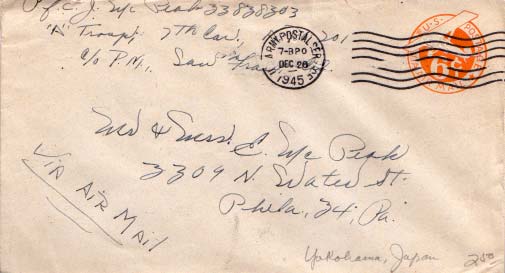 Pfc. J. Mc Peak 33838303
"A" Troop, 7th Cav., 201
c/o P.M., San
U.S. ARMY POSTAL SERVICE
7-BPO
DEC 26
1945
U.S. POSTAGE
6¢
AIR MAIL
Mr & Mrs. E. Mc Peak
3309 N. Water St.
Phila. 34, Pa.
Via Air Mail
Yokohama, Japan
2.50